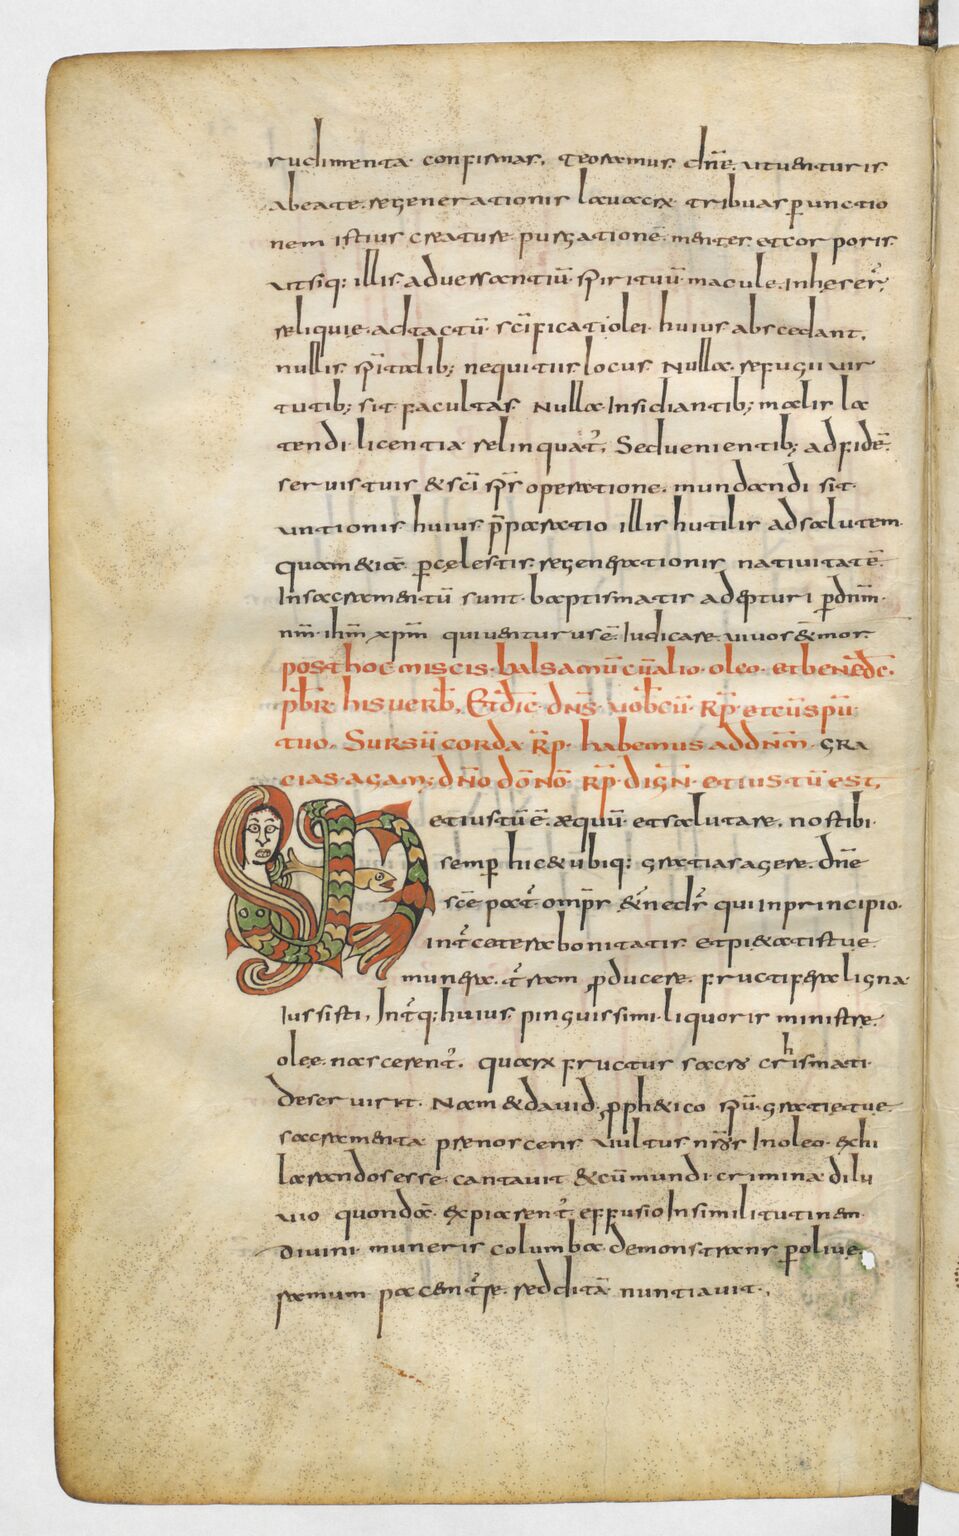 rudimenta confirmas. teoramus dñe. utuenturis
abeate. regenerationis lauacra tribuas p̄unctio
nem istius creature purgationē mentes. etcorporis.
utsiq; illis aduersantiū spirituū macule. Inheser̄
reliquie. adtactū. scīficati olei huius abscedant.
nullis spītalib; nequitiis locus Nulla refugii uir
tutib; sit facultas. Nulla Insidiantib; malis la
tendi licentia relinquat̄. Seduenientib; adfidē.
seruis tuis & scī sp̄s operatione. mundandi sit
untionis huius p̄paratio illis hutilis adsalutem.
quam&iā p̄celestis. regenerationis natiuitatē.
Insacramentū sunt. baptismatis adepturi p̄dnm̄.
nm̄. ihm̄ xp̄m quiuenturusē. Iudicare uiuos&mor
posthoc miscis. balsamū cūalio. oleo. etbenedc̄.
pb̄r. hisuerb̄. Etdic̄ dn̄s uobcū. Rp̄. etcūspū
tuo. Sursū corda Rp̄. habemus addnm̄. gra
cias. agam; dn̄o dōnō. Rp̄. dign̄. etiustū est.
etiustūē. æquū. etsalutare. nostibi
semp̄ hic&ubiq; gratiasagere. dñe
scē pat̄ omp̄s &ern̄e ds̄ quiInprincipio.
int̄ cetera bonitatis. etpi&atistue
munera. t̄ram p̄ducere. fructifera ligna
Iussisti. Int̄q; huius pinguissimi. liquoris ministre.
olee. nascerent̄. quarx fructus sacro chrismati
deseruirit. Nam&dauid p̄ph&ico spū. gratietue.
sacramenta prenoscens uultus nr̄os Inoleo. exhi
larandosesse. cantauit &cūmundi. crimina dilu
uio quondā. expiarent̄. effusio Insimilitutinem.
diuini muneris columba demonstrans p̄oliue.
ramum pacem t̄re. redditā nuntiauit.